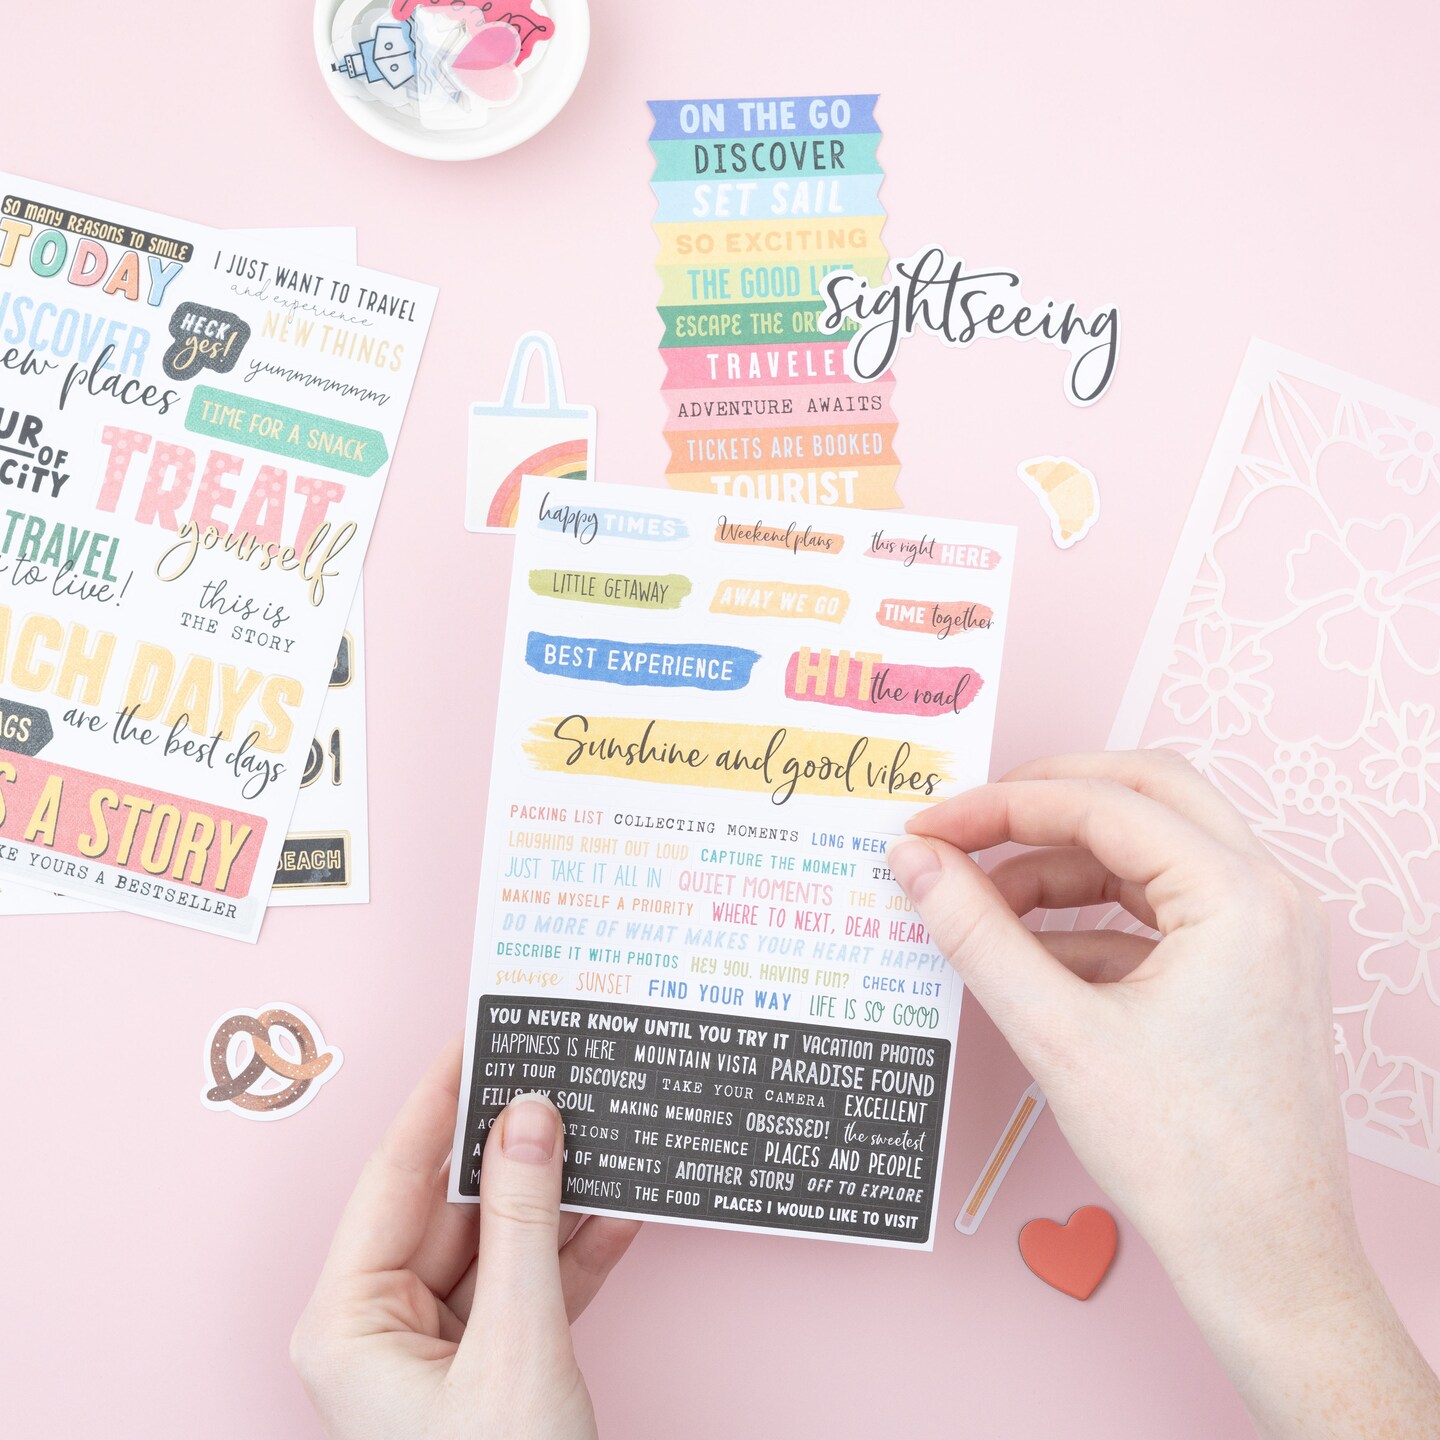 ON THE GO
DISCOVER
SET SAIL
SO EXCITING
THE GOOD
ESCAPE THE
TRAVELE
ADVENTURE AWAITS
TICKETS ARE BOOKED
TOURIST
sightseeing
SO MANY REASONS TO SMILE
TODAY
I JUST WANT TO TRAVEL
and experience
NEW THINGS
ISCOVER
new places
HECK
yes!
yummmmmmm
TIME FOR A SNACK
UR
OF
CITY
TREAT
yourself
TRAVEL
to live!
this is
THE STORY
ACH DAYS
are the best days
AGS
S A STORY
KE YOURS A BESTSELLER
BEACH
happy TIMES
Weekend plans
this right HERE
LITTLE GETAWAY
AWAY WE GO
TIME together
BEST EXPERIENCE
HIT the road
Sunshine and good vibes
PACKING LIST COLLECTING MOMENTS LONG WEEK
LAUGHING RIGHT OUT LOUD CAPTURE THE MOMENT TH
JUST TAKE IT ALL IN QUIET MOMENTS THE JOU
MAKING MYSELF A PRIORITY WHERE TO NEXT, DEAR HEART
DO MORE OF WHAT MAKES YOUR HEART HAPPY!
DESCRIBE IT WITH PHOTOS HEY YOU, HAVING FUN? CHECK LIST
sunrise SUNSET FIND YOUR WAY LIFE IS SO GOOD
YOU NEVER KNOW UNTIL YOU TRY IT VACATION PHOTOS
HAPPINESS IS HERE MOUNTAIN VISTA PARADISE FOUND
CITY TOUR DISCOVERY TAKE YOUR CAMERA EXCELLENT
FILLS MY SOUL MAKING MEMORIES OBSESSED! the sweetest
ATIONS THE EXPERIENCE PLACES AND PEOPLE
N OF MOMENTS ANOTHER STORY OFF TO EXPLORE
MOMENTS THE FOOD PLACES I WOULD LIKE TO VISIT